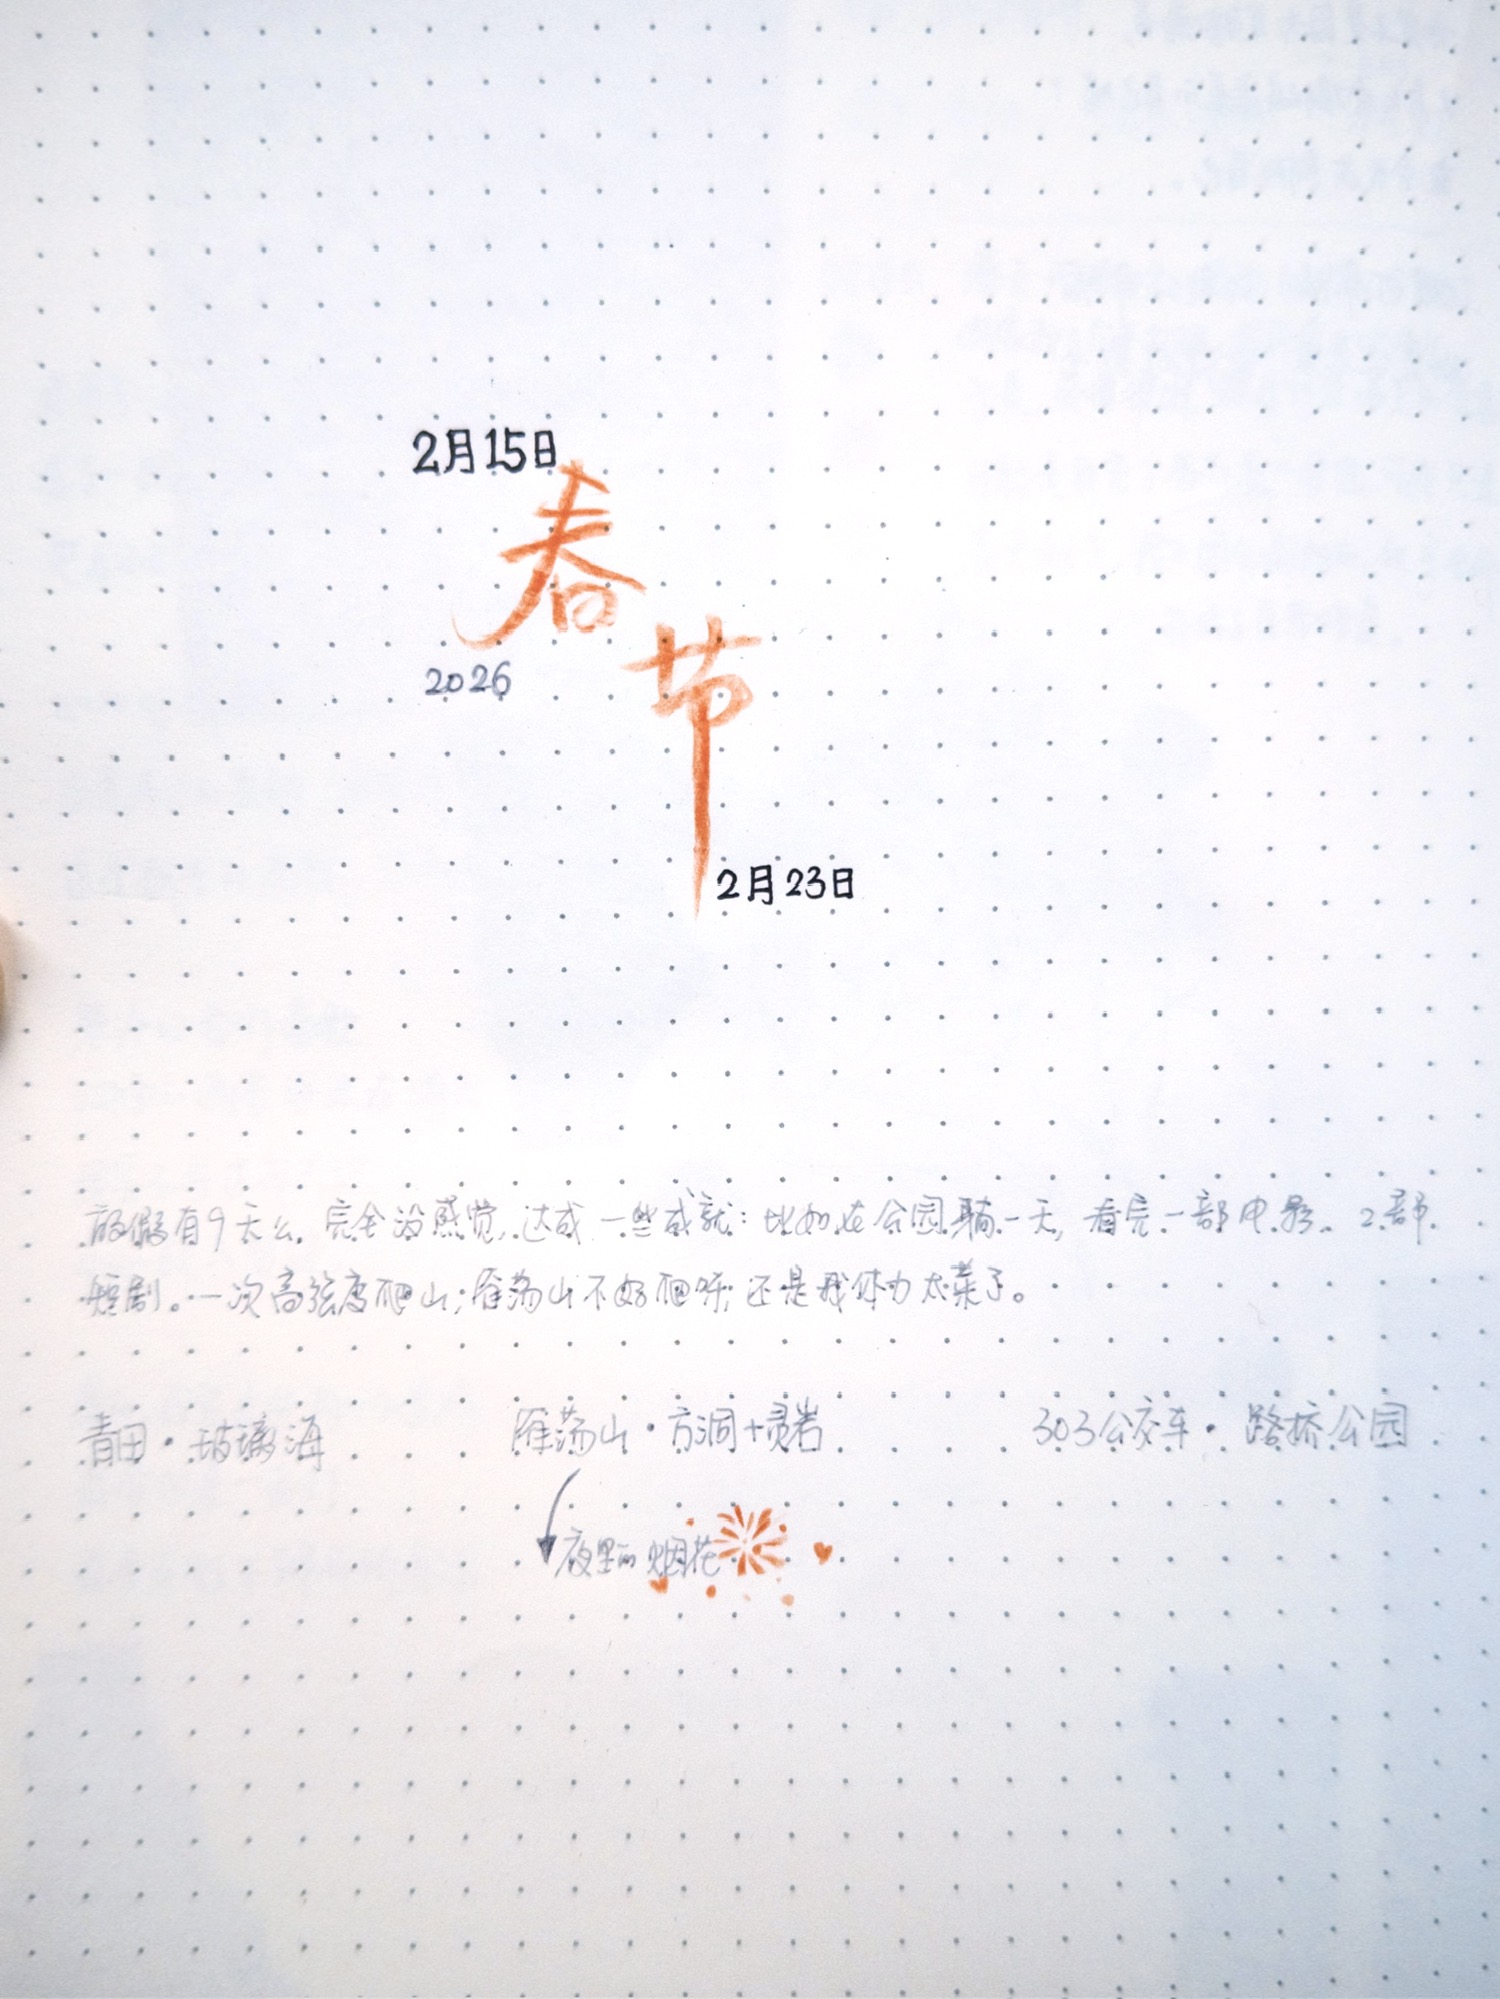 2月15日
春
节
2026
2月23日
放假有9天么,完全没感觉,达成一些成就:比如在公园躺一天,看完一部电影、2部
短剧。一次高强度爬山;雁荡山不好爬呀;还是我体力太菜了。
青田·玻璃海
雁荡山·方洞+灵岩
303公交车·路桥公园
夜里的烟花